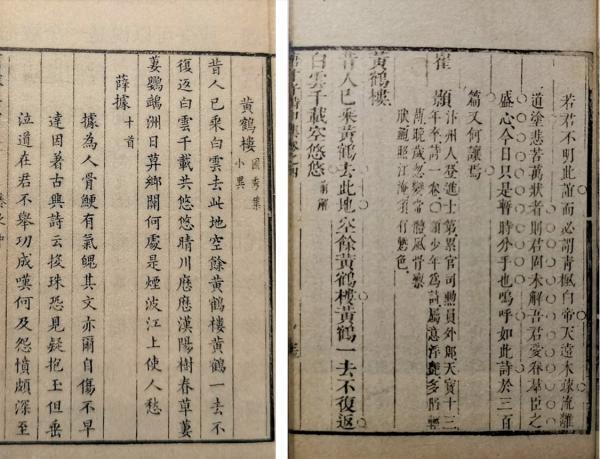 黃鶴樓 國秀集小異
昔人已乘白雲去此地空餘黃鶴樓黃鶴一去不
復返白雲千載共悠悠晴川歷歷漢陽樹春草萋
萋鸚鵡洲日暮鄉關何處是煙波江上使人愁
薛據 十首
據為人骨鯁有氣魄其文亦爾自傷不早
達因著古興詩云投珠恐見疑抱玉但垂
泣道在君不舉功成嘆何及怨憤頗深至
若君不明此誼而必謂青楓白帝天遠木疎流離
道塗悲苦萬狀者則君固未解吾君愛養羣臣之
盛心今日只是暫時分手也嗚呼如此詩於三百
篇又何讓焉
崔顥
汴州人登進士第累官司勳員外郎天寶十三
年卒詩一卷○顥少年為詩屬意浮艷多陷輕
薄晚歲忽變常體風骨凜
黃鶴樓
昔人已乘黃鶴去此地空餘黃鶴樓黃鶴一去不復返
白雲千載空悠悠 前解